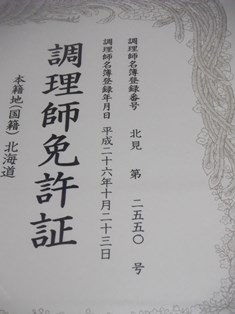 調理師名簿登録番号 北見 第 二五五〇 号
調理師名簿登録年月日 平成二十六年十月二十三日
調理師免許証
本籍地(国籍) 北海道